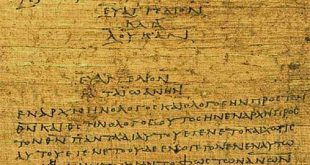 ΕΥΑΓΓΕΛΙΟΝ
ΚΑΤΑ
ΛΟΥΚΑΝ
ΕΥΑΓΓΕΛΙΟΝ
ΚΑΤΑ ΙΩΑΝΗΝ
ΕΝΑΡΧΗΗΝΟΛΟΓΟΣΚΑΙΟΛΟΓΟΣΗΝΠΡΟΣΤΟΝ
ΘΝΚΑΙΘΣΗΝΟΛΟΓΟΣΟΥΤΟΣΗΝΕΝΑΡΧΗΠΡΟΣ
ΤΟΝΘΝΠΑΝΤΑΔΙΑΥΤΟΥΕΓΕΝΕΤΟΚΑΙΧΩΡΙΣ
ΑΥΤΟΥΕΓΕΝΕΤΟΥΔΕΕΝΟΓΕΓΟΝΕΝΕΝΑΥΤΩ
ΤΟΦΩΣΤΩΝΑΝΩΝ